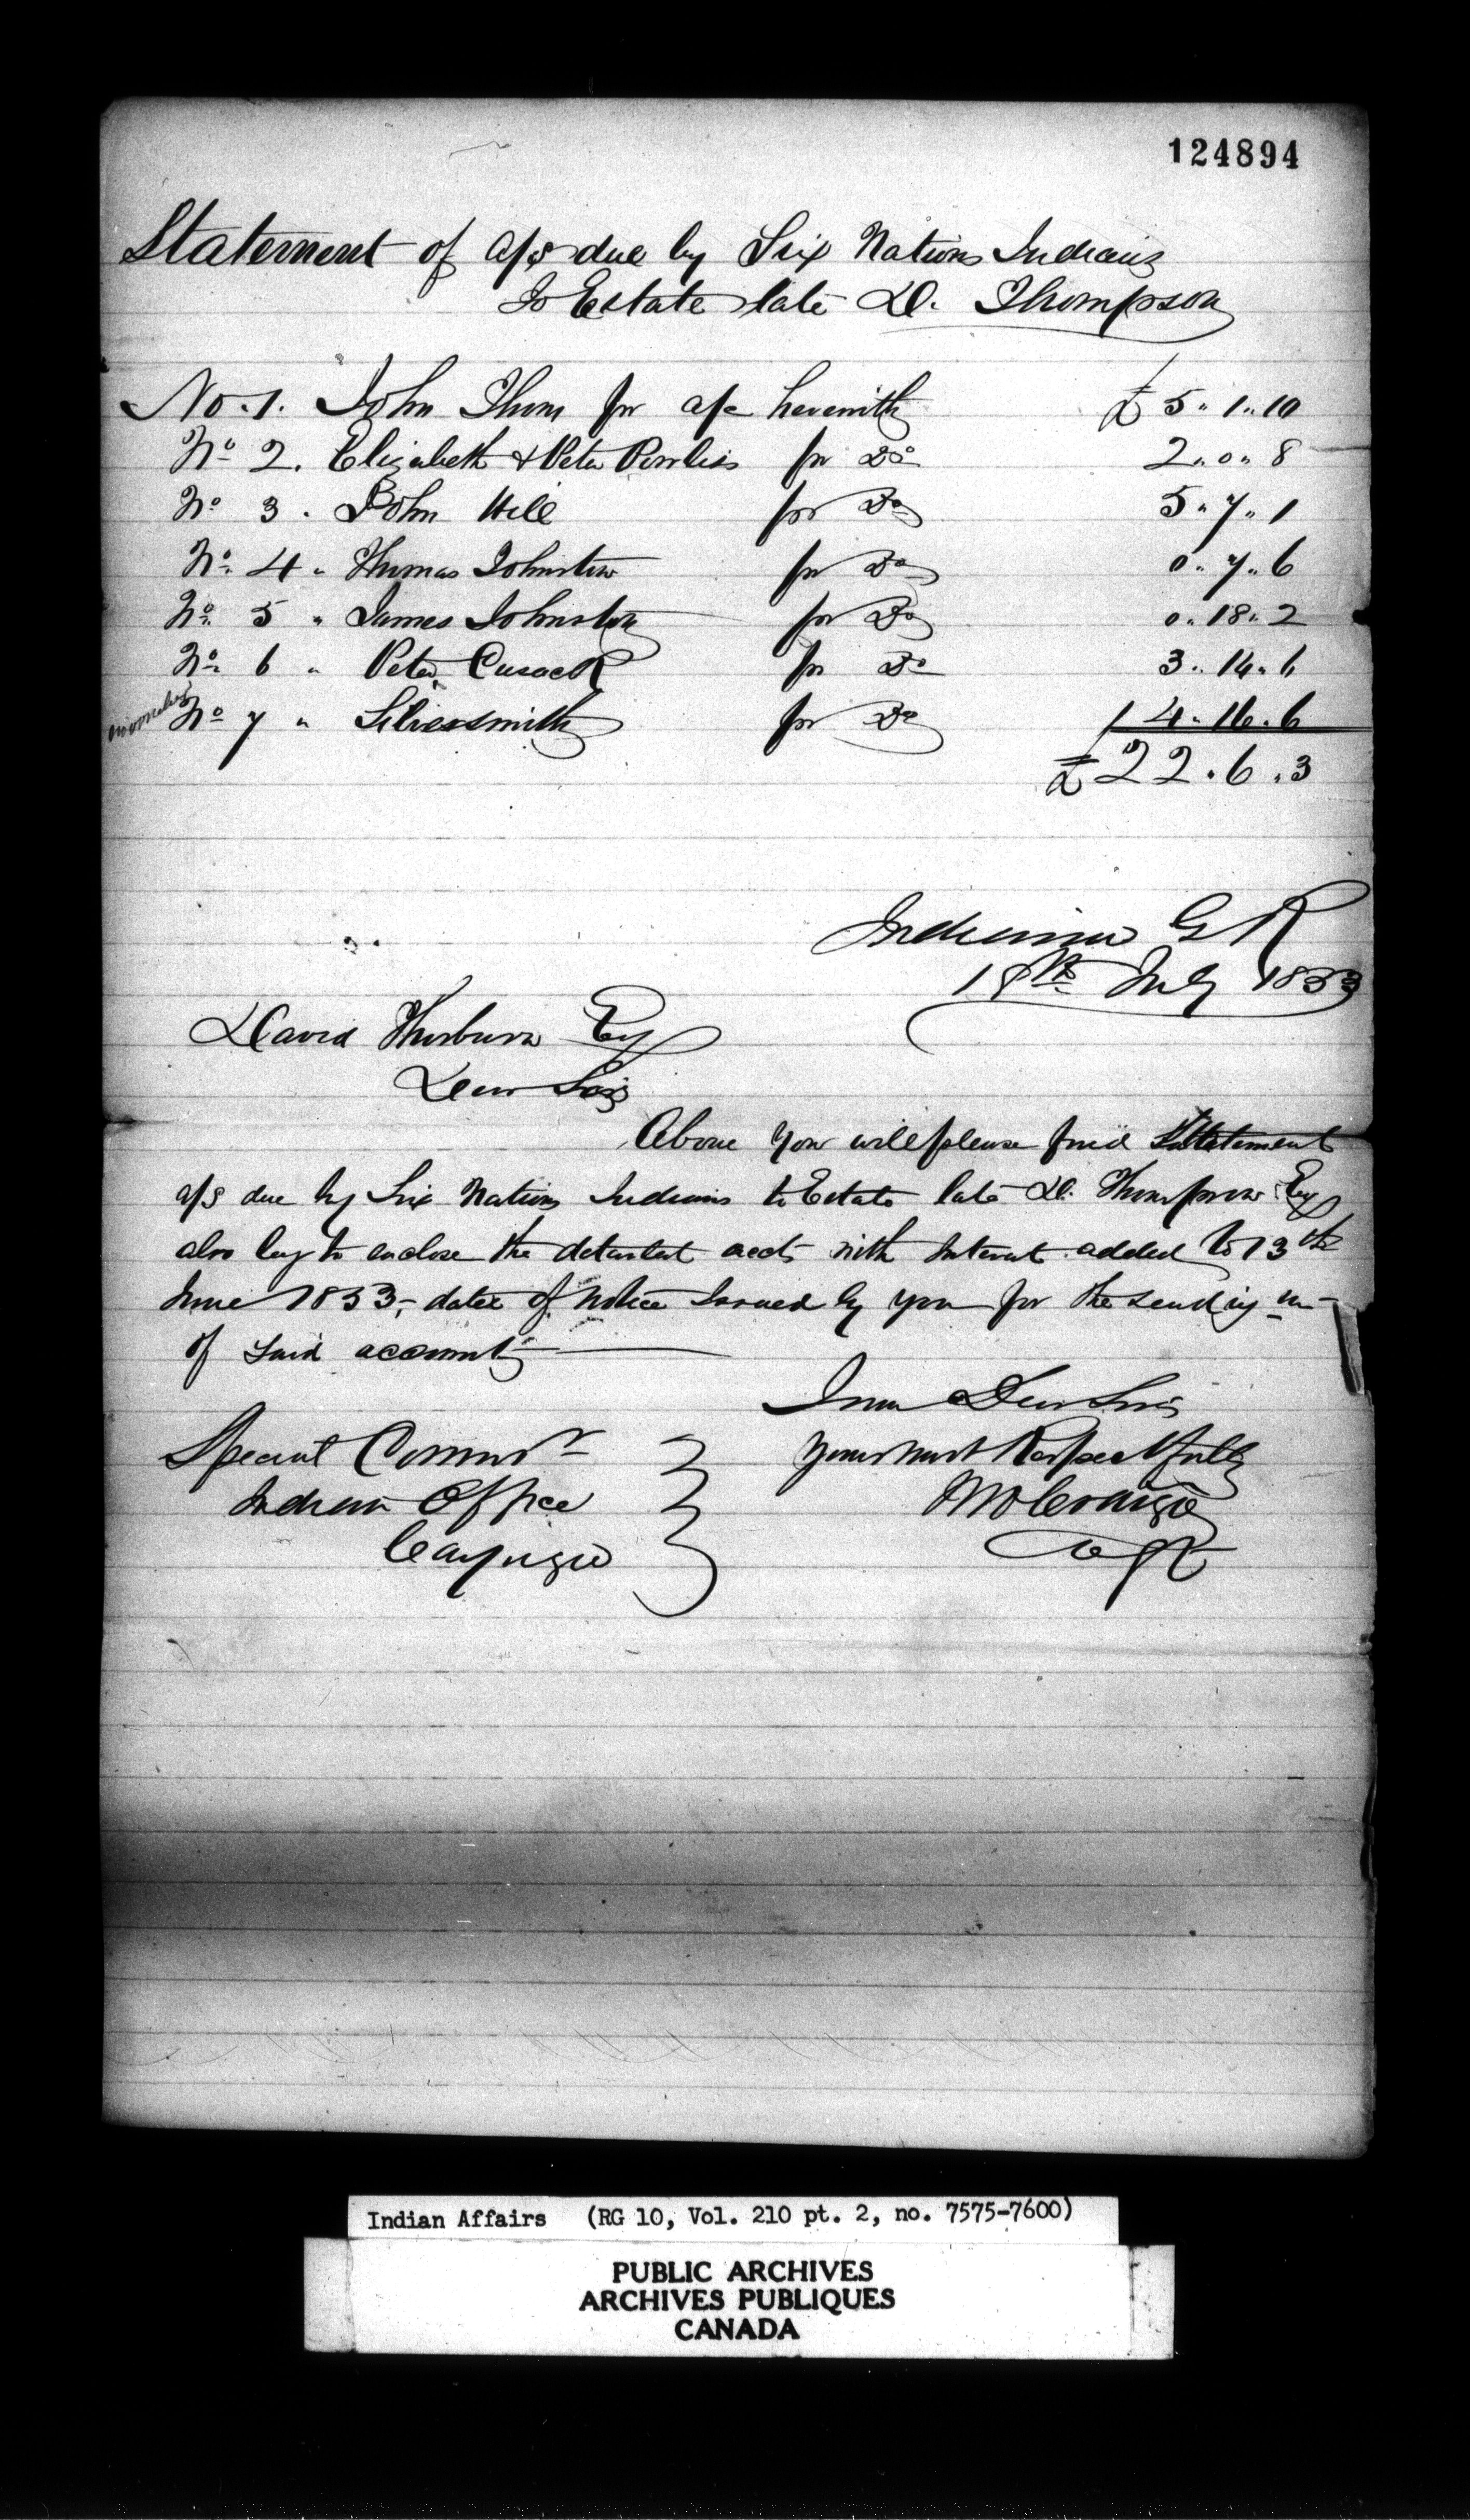 124894
Statement of a/cs due by Six Nations Indians
To Estate late D. Thompson
No. 1. John Thom for a/c herewith £ 5 " 1 " 10
No 2. Elizabeth & Peter Powless for Do 2 " 0 " 8
No 3 . John Hill for Do 5 " 7 " 1
No. 4 " Thomas Johnston for Do 0 " 7 " 6
No. 5 " James Johnston for Do 0 " 18 " 2
No. 6 " Peter Cusack for Do 3 " 14 " 6
No 7 " Silversmith for Do 4 " 16 " 6
£ 22 " 6 " 3
Indiana G R
18th July 1853
David Thorburn Esq
Dear Sir
Above you will please find Statement
a/cs due by Six Nations Indians to Estate late D. Thompson Esq
also beg to enclose the detailed accts with Interest added to 13th
June 1853, date of notice Issued by you for the sending in
of said accounts
I am Dear Sir
Special Commr Yours most Respectfully
Indian Office
Cayuga Agt
Indian Affairs (RG 10, Vol. 210 pt. 2, no. 7575-7600)
PUBLIC ARCHIVES
ARCHIVES PUBLIQUES
CANADA